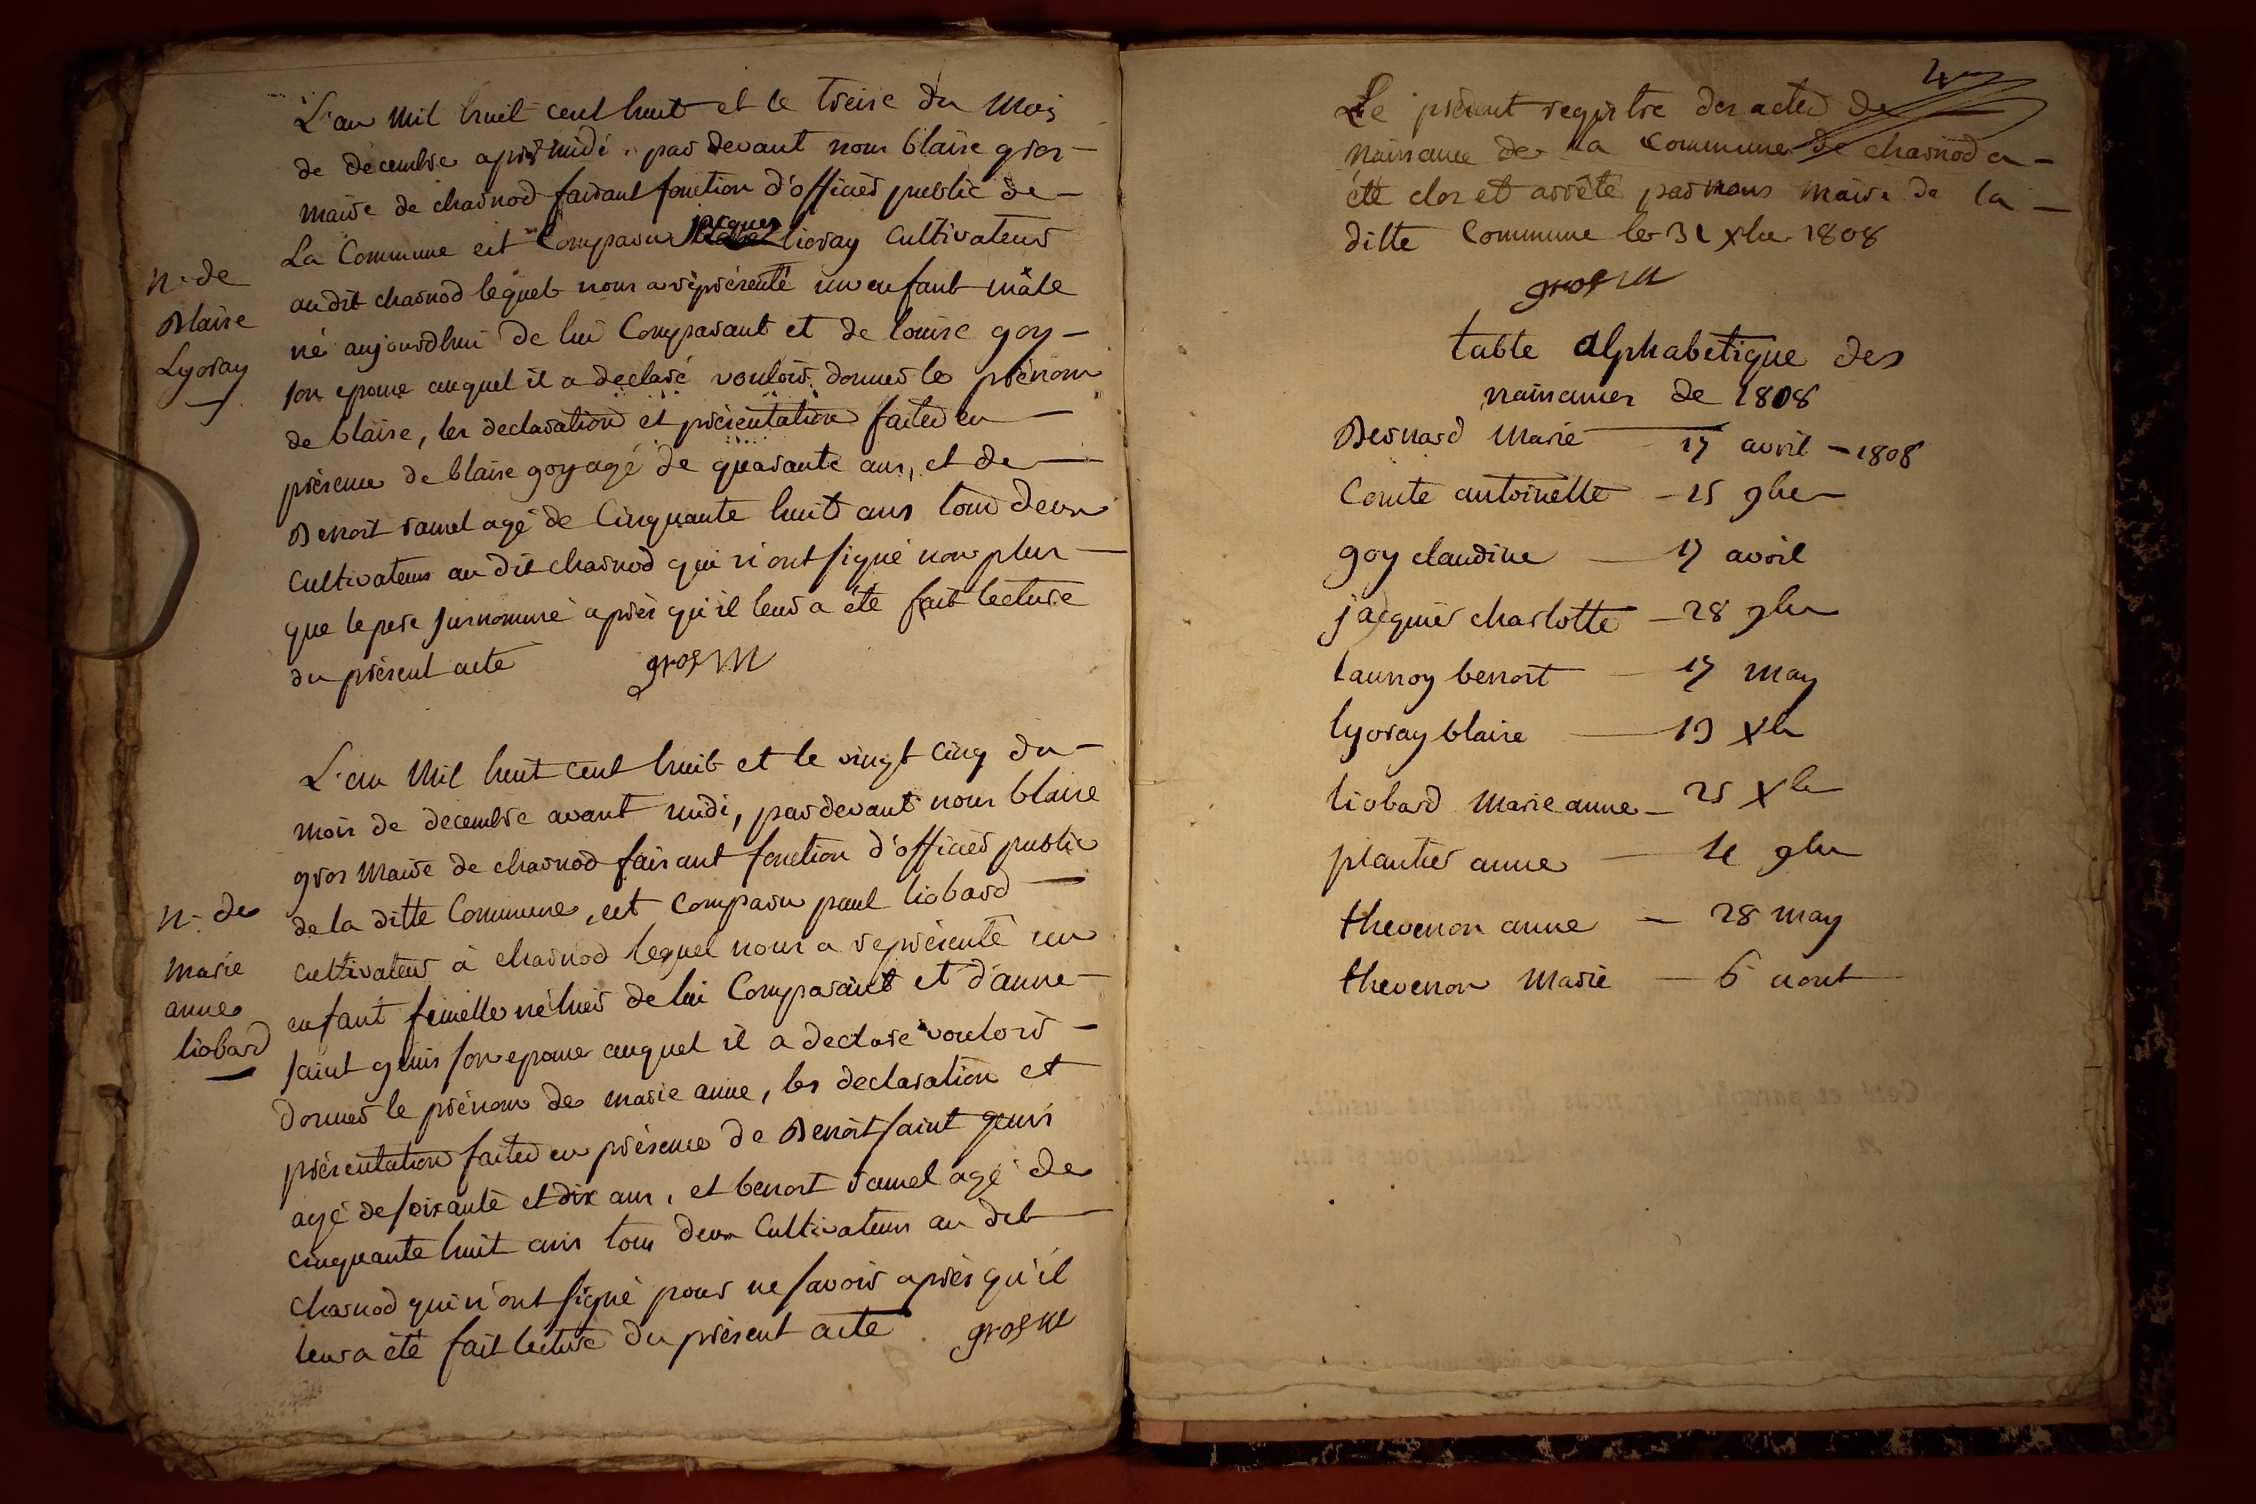 L'an mil huit cent huit et le treize du mois
de decembre après midi, par devant nous blaise gros
maire de charnod faisant fonction d'officier public de
La Commune est Comparu jacques lioray Cultivateur
au dit charnod lequel nous a représenté un enfant mâle
né aujourdhui de lui Comparant et de louise goy
son epouse auquel il a declaré vouloir donner le prénom
de blaise, les declaration et présentation faites en
présence de blaise goy agé de quarante ans, et de
Benoit ramel agé de Cinquante huit ans tous deux
Cultivateurs au dit charnod qui n'ont signé non plus
que le pere surnommé après qu'il leur a été fait lecture
du présent acte gros M
n. de
Blaise
Lyoray
L'an mil huit cent huit et le vingt cinq du
mois de decembre avant midi, par devant nous blaise
gros maire de charnod faisant fonction d'officier public
de la ditte Commune, est comparu paul liobard
cultivateur à charnod lequel nous a représenté un
enfant femelle né hier de lui Comparant et d'anne
saint genis son epouse auquel il a declaré vouloir
donner le prénom de marie anne, les declaration et
présentation faites en présence de Benoit saint genis
agé de soixante et dix ans, et benoit ramel agé de
cinquante huit ans tous deux Cultivateurs au dit
charnod qui n'ont signé pour ne savoir après qu'il
leur a été fait lecture du présent acte gros M
n. de
marie
anne
liobard
4
Le présent registre des actes de
naissance de la Commune de charnod a
été clos et arrêté par nous maire de la
ditte Commune le 31 xbre 1808
gros M
table alphabetique des
naissances de 1808
Bernard Marie 17 avril - 1808
Comte antoinette - 15 9bre
goy claudine 17 avril
jacquier charlotte - 28 9bre
launoy benoit - 17 may
lyoray blaise 13 xbre
liobard Marie anne - 25 xbre
plantier anne - 11 9bre
thevenon anne - 28 may
thevenon Marie - 6 aout